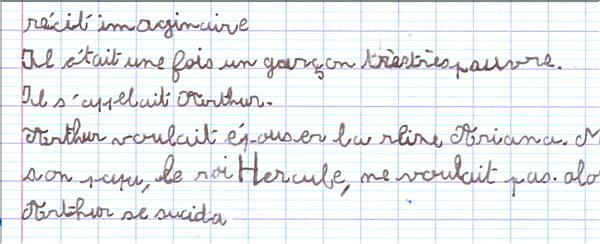 récit imaginaire
Il était une fois un garçon trèstrès pauvre.
Il s'appelait Arthur.
Arthur voulait épouser la reine Ariana. M
son papa, le roi Hercule, ne voulait pas. alo
Arthur se sucida